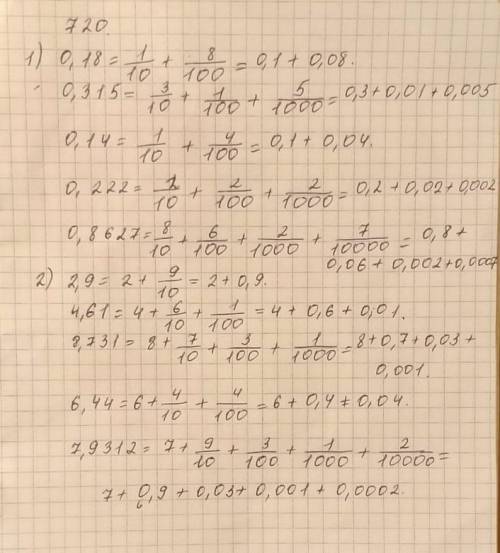 720.
1) 0,18 = 1/10 + 8/100 = 0,1 + 0,08.
0,315 = 3/10 + 1/100 + 5/1000 = 0,3 + 0,01 + 0,005
0,14 = 1/10 + 4/100 = 0,1 + 0,04.
0,222 = 2/10 + 2/100 + 2/1000 = 0,2 + 0,02 + 0,002
0,8627 = 8/10 + 6/100 + 2/1000 + 7/10000 = 0,8 +
0,06 + 0,002 + 0,0007
2) 2,9 = 2 + 9/10 = 2 + 0,9.
4,61 = 4 + 6/10 + 1/100 = 4 + 0,6 + 0,01.
8,731 = 8 + 7/10 + 3/100 + 1/1000 = 8 + 0,7 + 0,03 +
0,001.
6,44 = 6 + 4/10 + 4/100 = 6 + 0,4 + 0,04.
7,9312 = 7 + 9/10 + 3/100 + 1/1000 + 2/10000 =
7 + 0,9 + 0,03 + 0,001 + 0,0002.